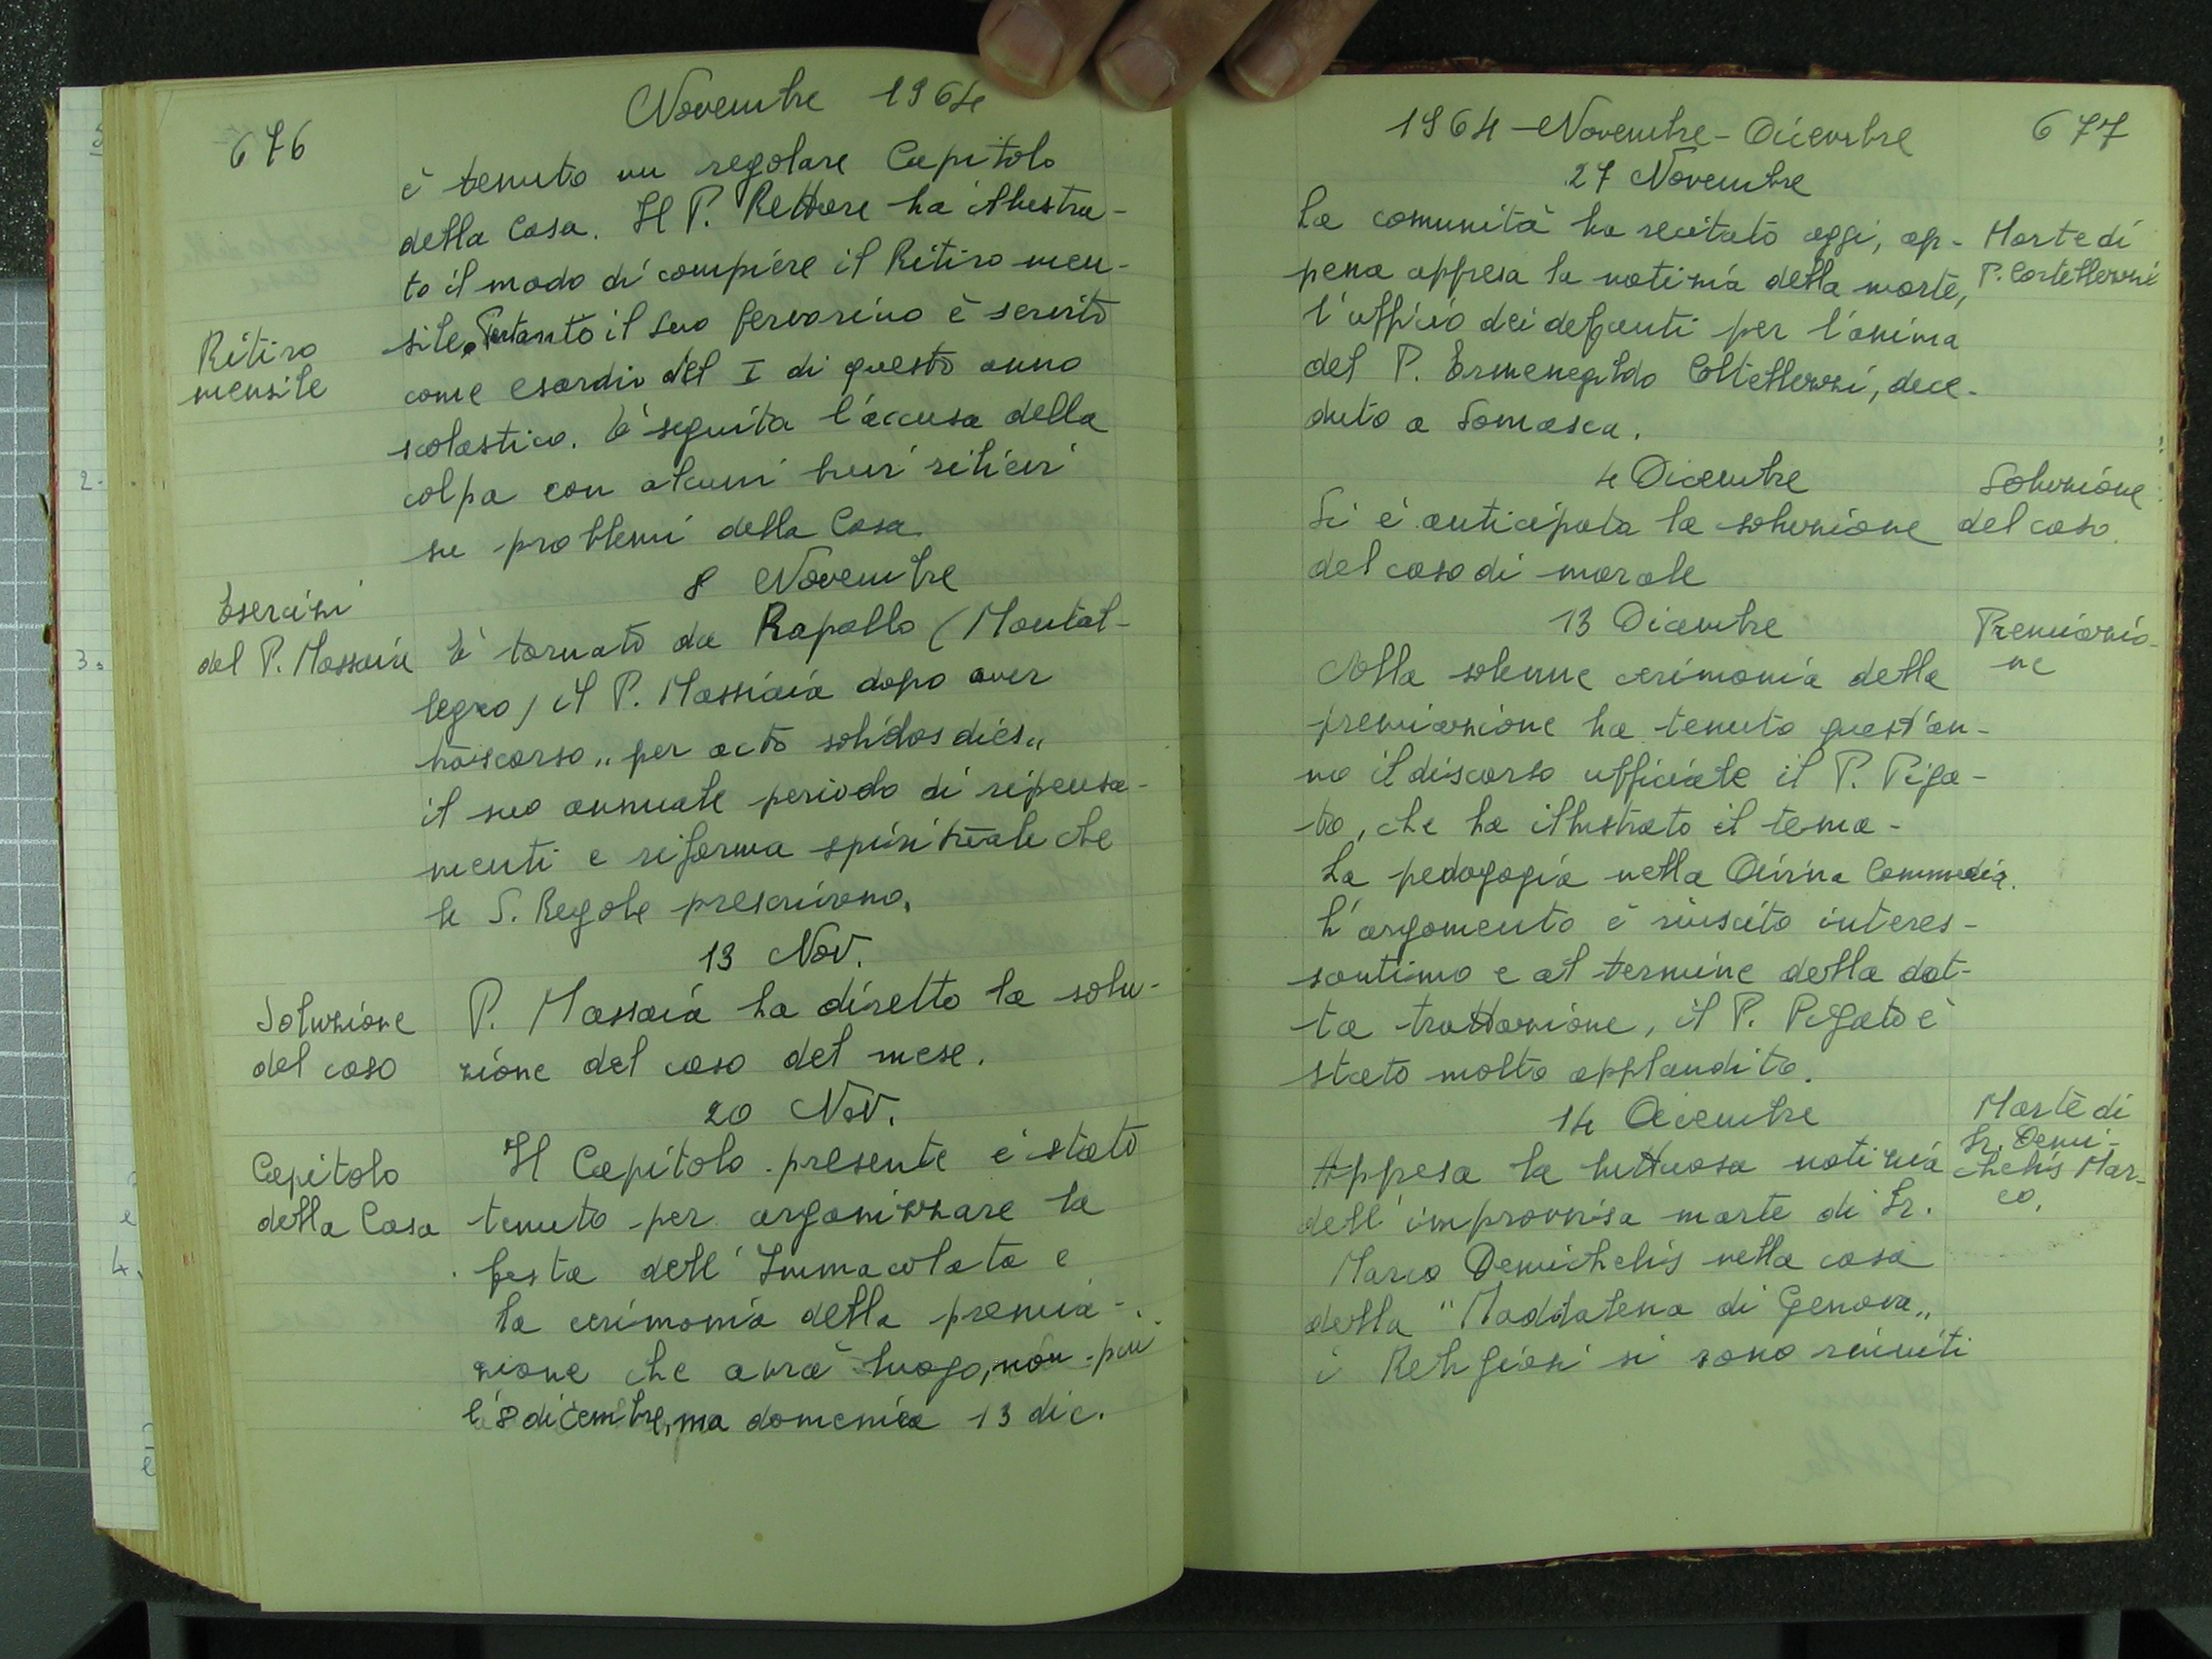 676
Novembre 1964
è tenuto un regolare Capitolo
della Casa. Il P. Rettore ha illustra-
to il modo di compiere il Ritiro men-
sile. Pertanto il suo fervorino è servito
come esordio del I di questo anno
scolastico. È seguita l'accusa della
colpa con alcuni brevi rilievi
su problemi della Casa
Ritiro
mensile
8 Novembre
Esercizi
del P. Massaia
È tornato da Rapallo (Montal-
legro) il P. Massaia dopo aver
trascorso „per octo solidos dies„
il suo annuale periodo di ripensa-
menti e riforma spirituale che
le S. Regole prescrivono.
13 Nov.
Soluzione
del caso
P. Massaia ha diretto la solu-
zione del caso del mese.
20 Nov.
Capitolo
della Casa
Il Capitolo presente è stato
tenuto per organizzare la
festa dell'Immacolata e
la cerimonia della premia-
zione che avrà luogo, non più
l'8 dicembre, ma domenica 13 dic.
1964 - Novembre - Dicembre
677
27 Novembre
La comunità ha recitato oggi, ap-
pena appresa la notizia della morte,
l'ufficio dei defunti per l'anima
del P. Ermenegildo Coltellezzi, dece-
duto a Somasca.
Morte di
P. Cortellezzi
4 Dicembre
Si è anticipata la soluzione
del caso di morale
Soluzione
del caso.
13 Dicembre
Nella solenne cerimonia della
premiazione ha tenuto quest'an-
no il discorso ufficiale il P. Piga-
to, che ha illustrato il tema -
La pedagogia nella Divina Commedia.
L'argomento è riuscito interes-
santimo e al termine della dot-
ta trattazione, il P. Pigato è
stato molto applaudito.
Premiazio-
ne
14 Dicembre
Appresa la luttuosa notizia
dell'improvvisa morte di Fr.
Marco Demichelis nella casa
della "Maddalena di Genova„
i Religiosi si sono riuniti
Morte di
Fr. Demi-
chelis Mar-
co.